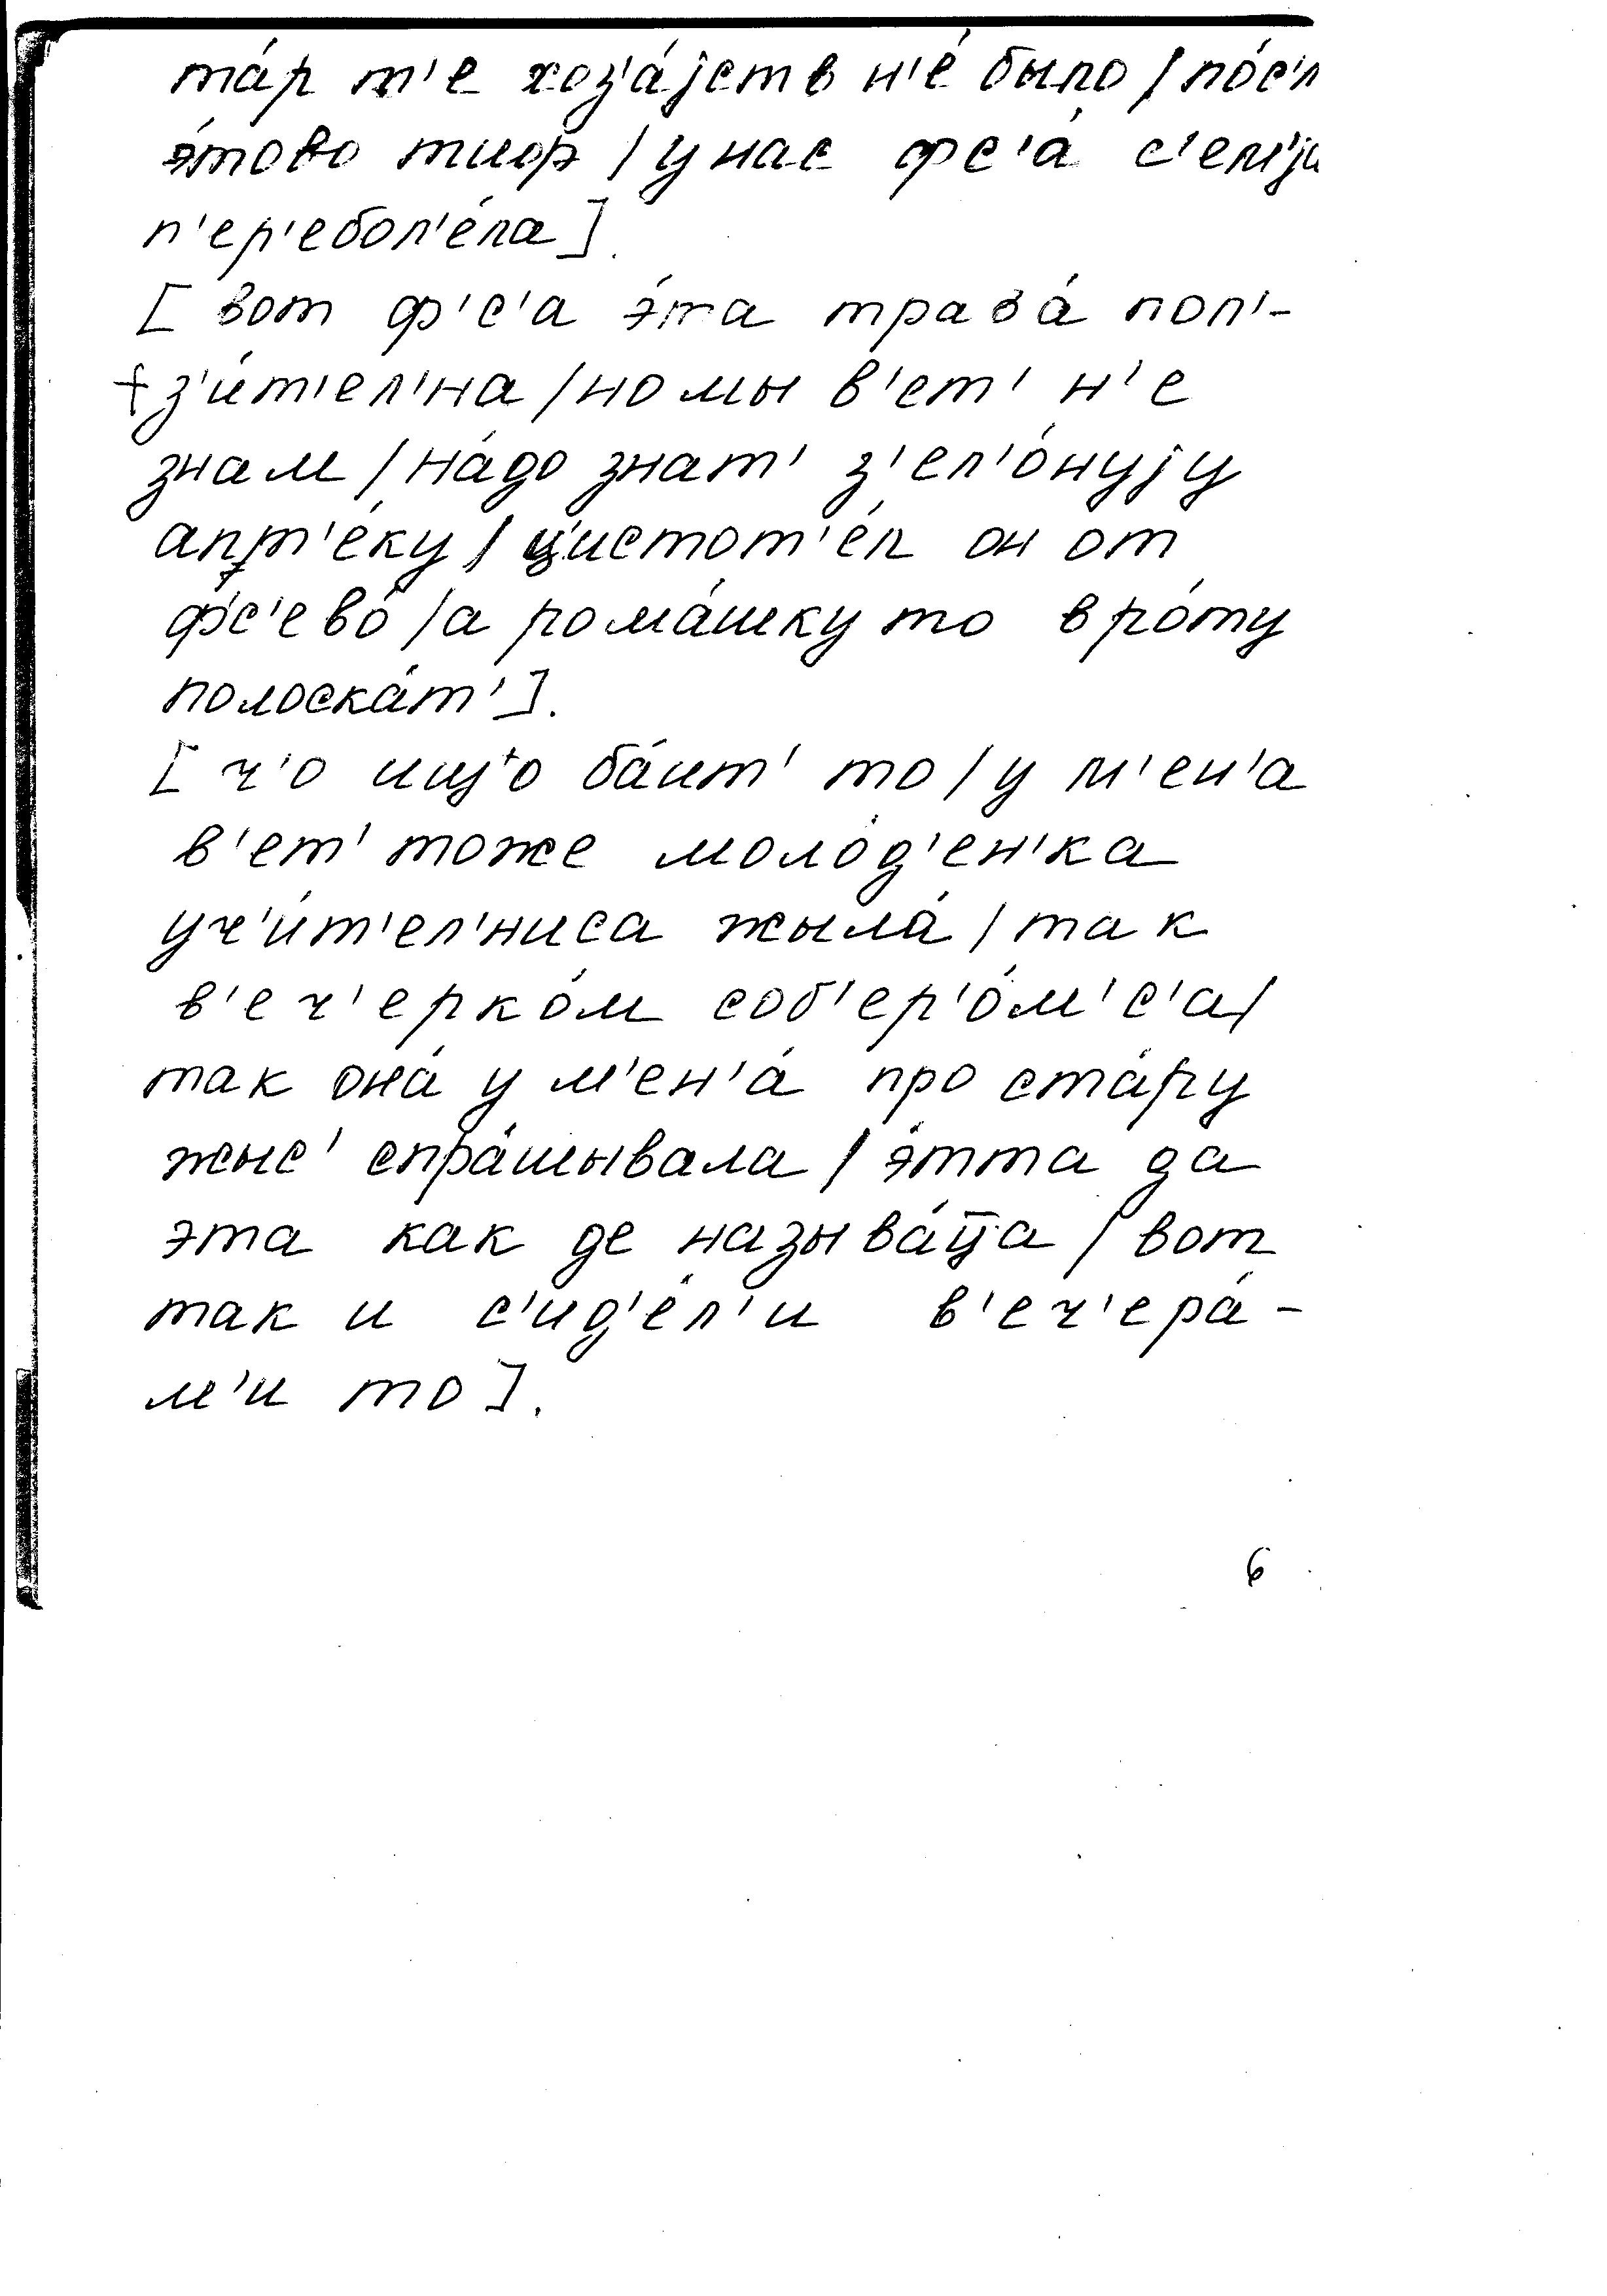 та́р т'е хоз'а́јств н'е́ было / по́с'л
э́тово тиор / у нас фс'а́ с'ем'ја
п'ер'ебол'е́ла].
[ вот ф'с'а э́та трава́ пол'-
з'и́т'ел'на / но мы в'ет' н'е
знам / на́до знат' з'ел'о́нују
апт'е́ку / ц'истот'е́л он от
ф'с'ево́ / а рома́шку то в ро́ту
полоска́т' ].
[ ч'о ищ'о ба́ит' то / у м'ен'а
в'ет' тоже моло́д'ен'ка
уч'и́т'ел'ниса жыла́ / так
в'еч'ерко́м соб'ер'о́м'с'а /
так она́ у м'ен'а́ про ста́ру
жыс' спра́шывала / э́тта да
эта как де называ́ца / вот
так и с'ид'е́л'и в'еч'ера́-
м'и то ].
6